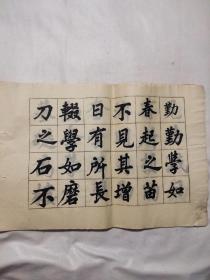 勤勤學如
春起之苗
不見其增
日有所長
輟學如磨
刀之石不